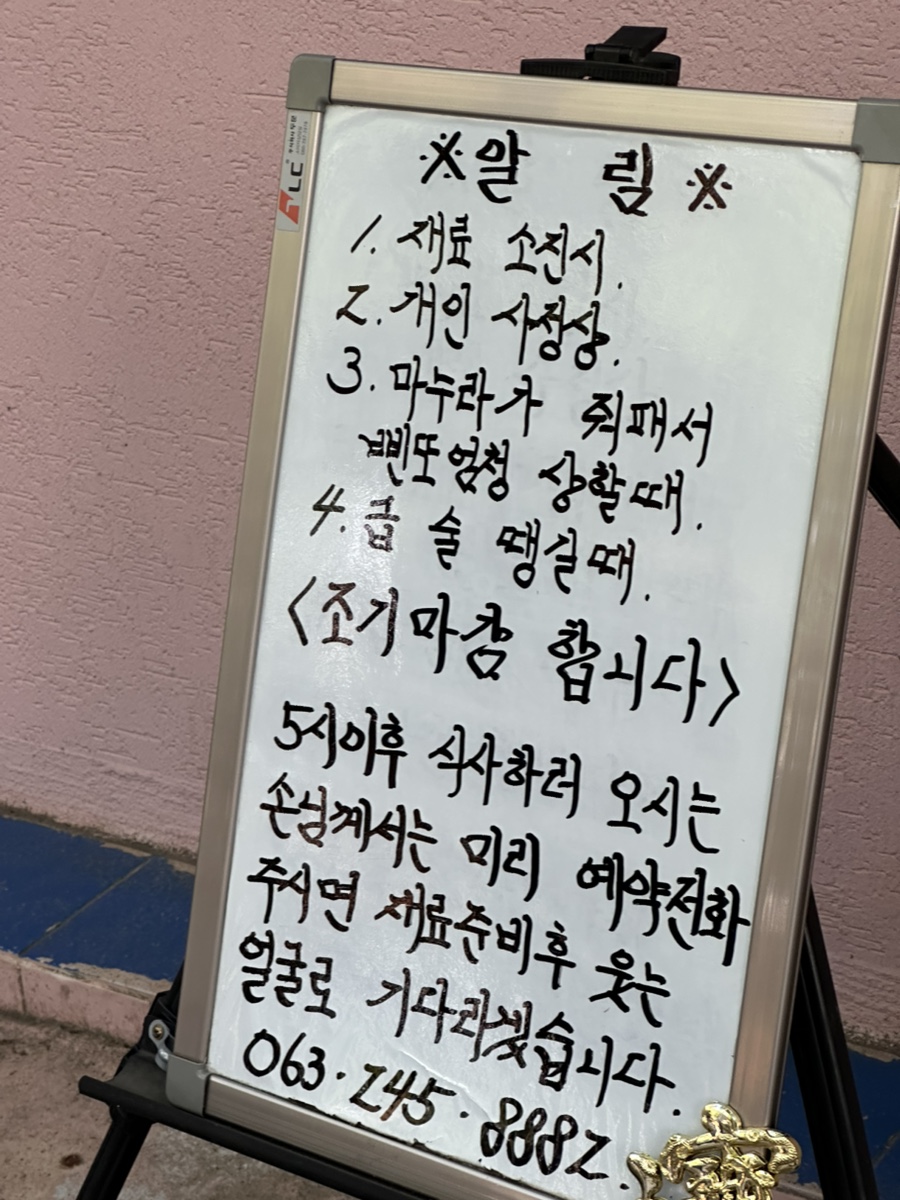 ※알 림※
1. 재료 소진시.
2. 개인 사정상.
3. 마누라가 줘패서
삔또엄청 상할때.
4. 급 술 땡길때.
<조기마감 합니다>
5시이후 식사하러 오시는
손님께서는 미리 예약전화
주시면 재료준비후 웃는
얼굴로 기다리겠습니다.
063.245.8882.